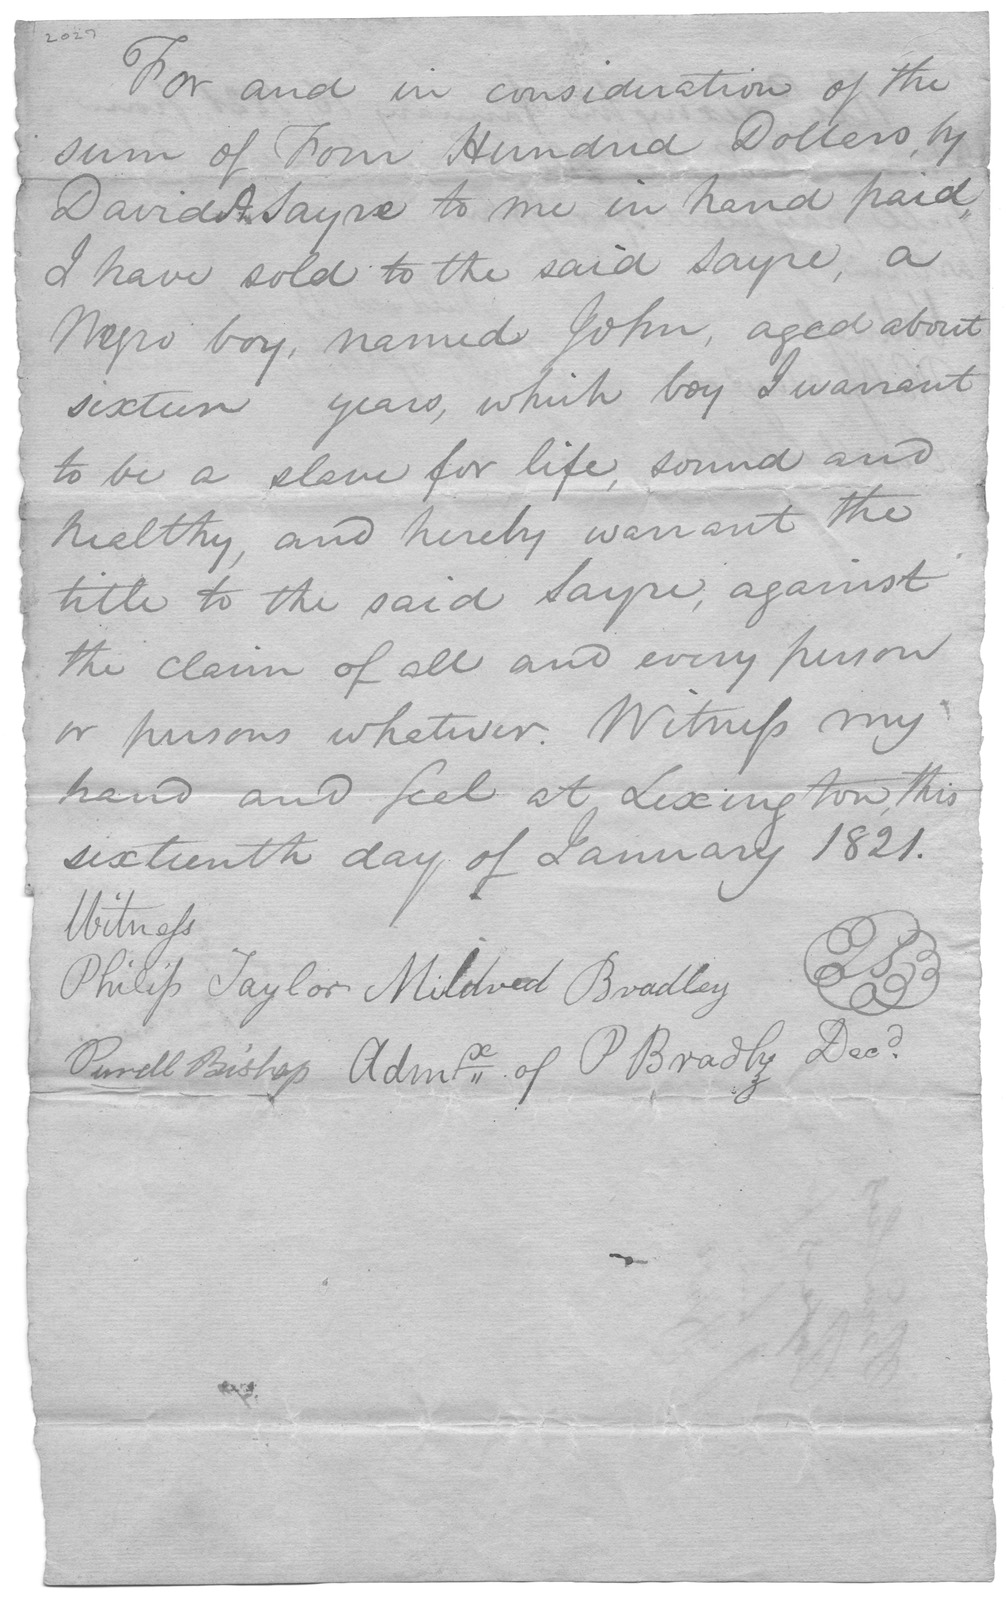 2027
For and in consideration of the
sum of Four Hundred Dollers, by
David A. Sayre to me in hand paid,
I have sold to the said Sayre, a
Negro boy, named John, aged about
sixteen years, which boy I warrant
to be a slave for life, sound and
healthy, and hereby warrant the
title to the said Sayre, against
the claim of all and every person
or persons whatever. Witness my
hand and seel at Lexington, this
sixteenth day of January 1821.
Witness
Philip Taylor Mildred Bradley
Purnell Bishop Admrx of P Bradly Decd.